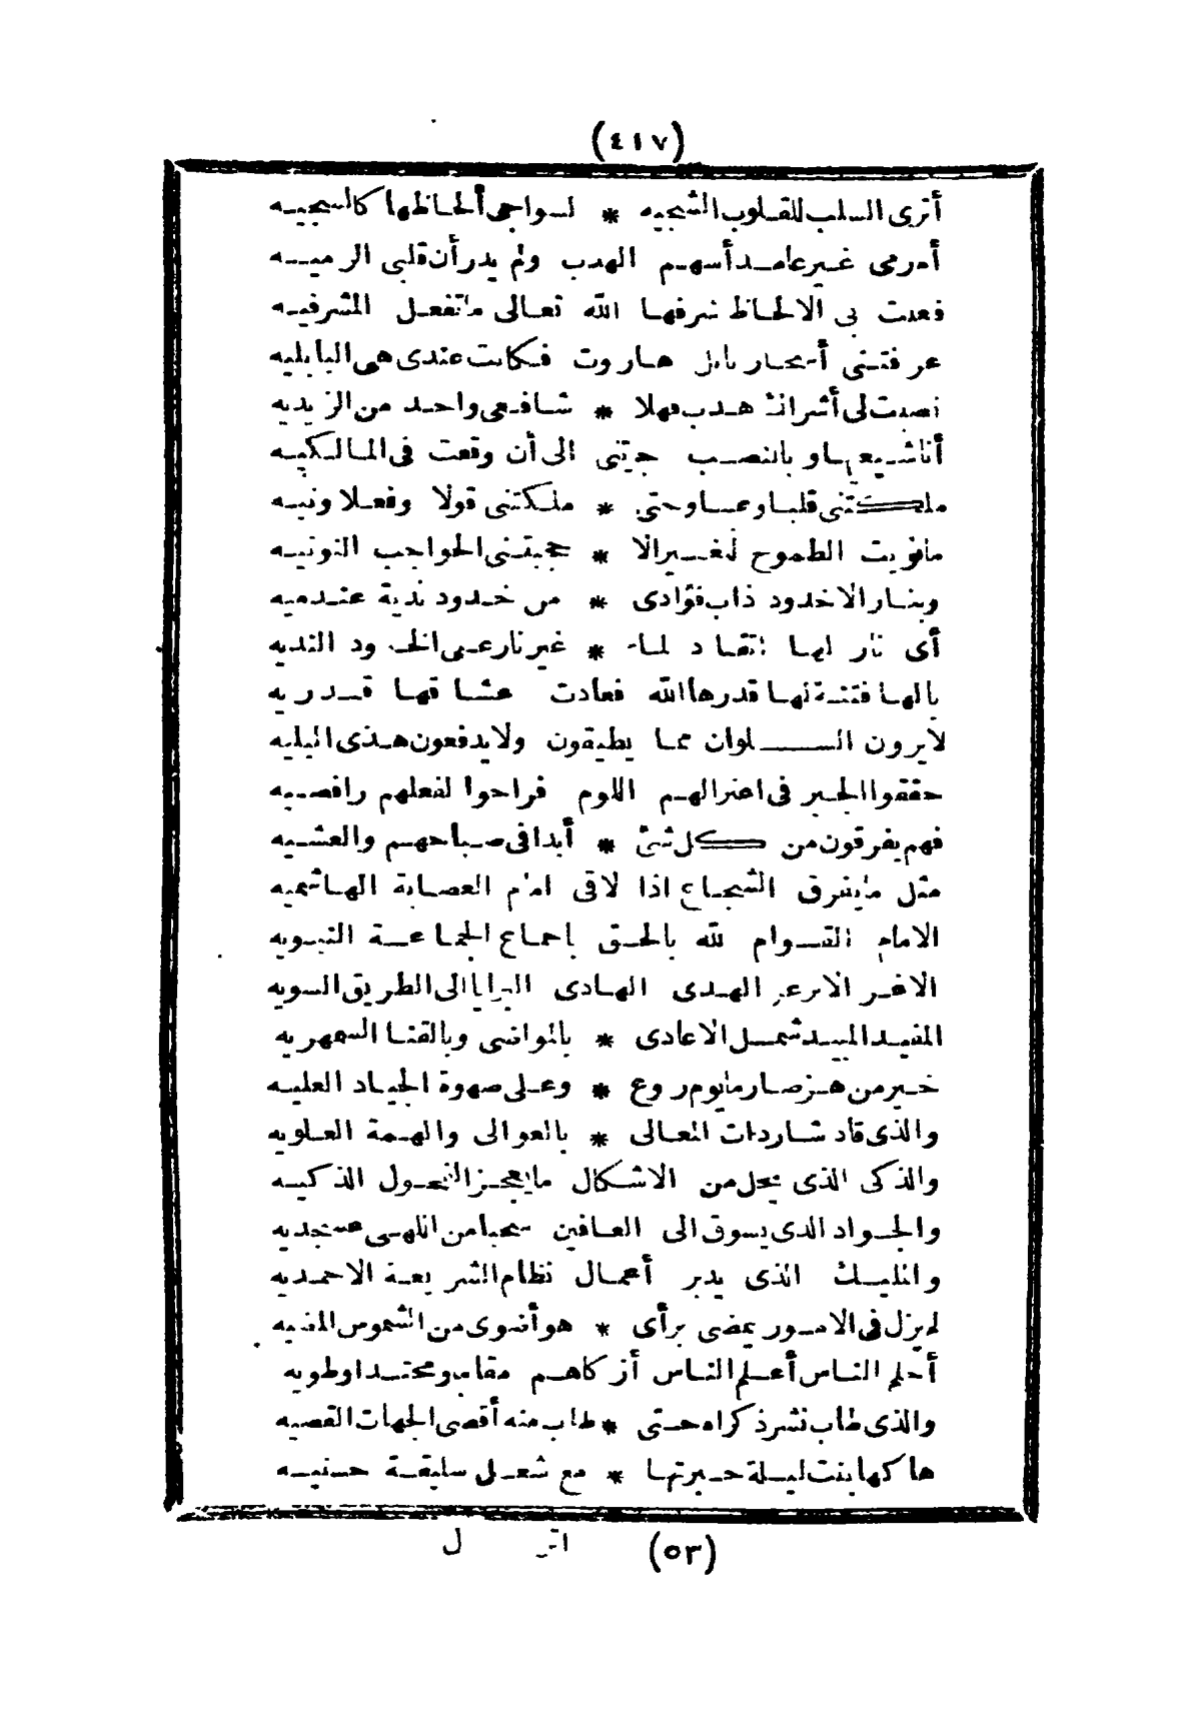 (٤١٧)
أترى السلب للقلوب الشجيه * لسواجى ألحاظها كالسجيه
أم رمى غير عامد أسهم الهدب ولم يدر أن قلبى الرميه
فعلت بى الالحاظ شرفها الله تعالى ما تفعل المشرفيه
عرفتنى أسحار بابل هاروت فكانت عندى هى البابليه
نصبت لى أشراك هدب فهلا * شافعى واحد من الزيديه
أنا شيعيها وبالنصب جرتنى الى أن وقعت فى المالكيه
ملكتنى قلبا وحتى * ملكتنى قولا وفعلا ونيه
مانويت الطموح لغير الا * حجبتنى الحواجب النونيه
وبنار الاخدود ذاب فؤادى * من خدود ندية عندميه
أى نار لها اتقاد لماء * غير نار عـى الخدود النديه
يالها فتنة لها قدرها الله فعادت عشاقها قدريه
لايرون السلوان مما يطيقون ولايدفعون هذى البليه
حققوا الجبر فى اعتزالهم اللوم فراحوا لفعلهم رافضيه
فهم يفرقون من كل شئ * أبدا فى صباحهم والعشيه
مثل مايفرق الشجاع اذا لاقى امام العصابة الهاشميه
الامام القوام لله بالحق باجماع الجماعة النبويه
الاغر الابر الهدى الهادى البرايا الى الطريق السويه
المفيد المبيد شمل الاعادى * بالمواضى وبالقنا السمهريه
خير من هز صارما يوم روع * وعلى صهوة الجياد العليه
والذى قاد شاردات المعالى * بالعوالى والهمة العلويه
والذكى الذى يحل من الاشكال ما يعجز الفحول الذكيه
والجواد الذى يسوق الى العافين سحبا من اللهى عسجديه
والمليك الذى يدبر أعمال نظام الشريعة الاحمديه
لم يزل فى الامور يمضى برأى * هو أضوى من الشموس المضيه
أحلم الناس أعلم الناس أزكاهم مقاما ومحتدا وطويه
والذى طاب نشر ذكراه حتى * طاب منه أقصى الجهات القصيه
هاكها بنت ليلة حبرتها * مع شغل سليقة حسنيه
(٥٣)